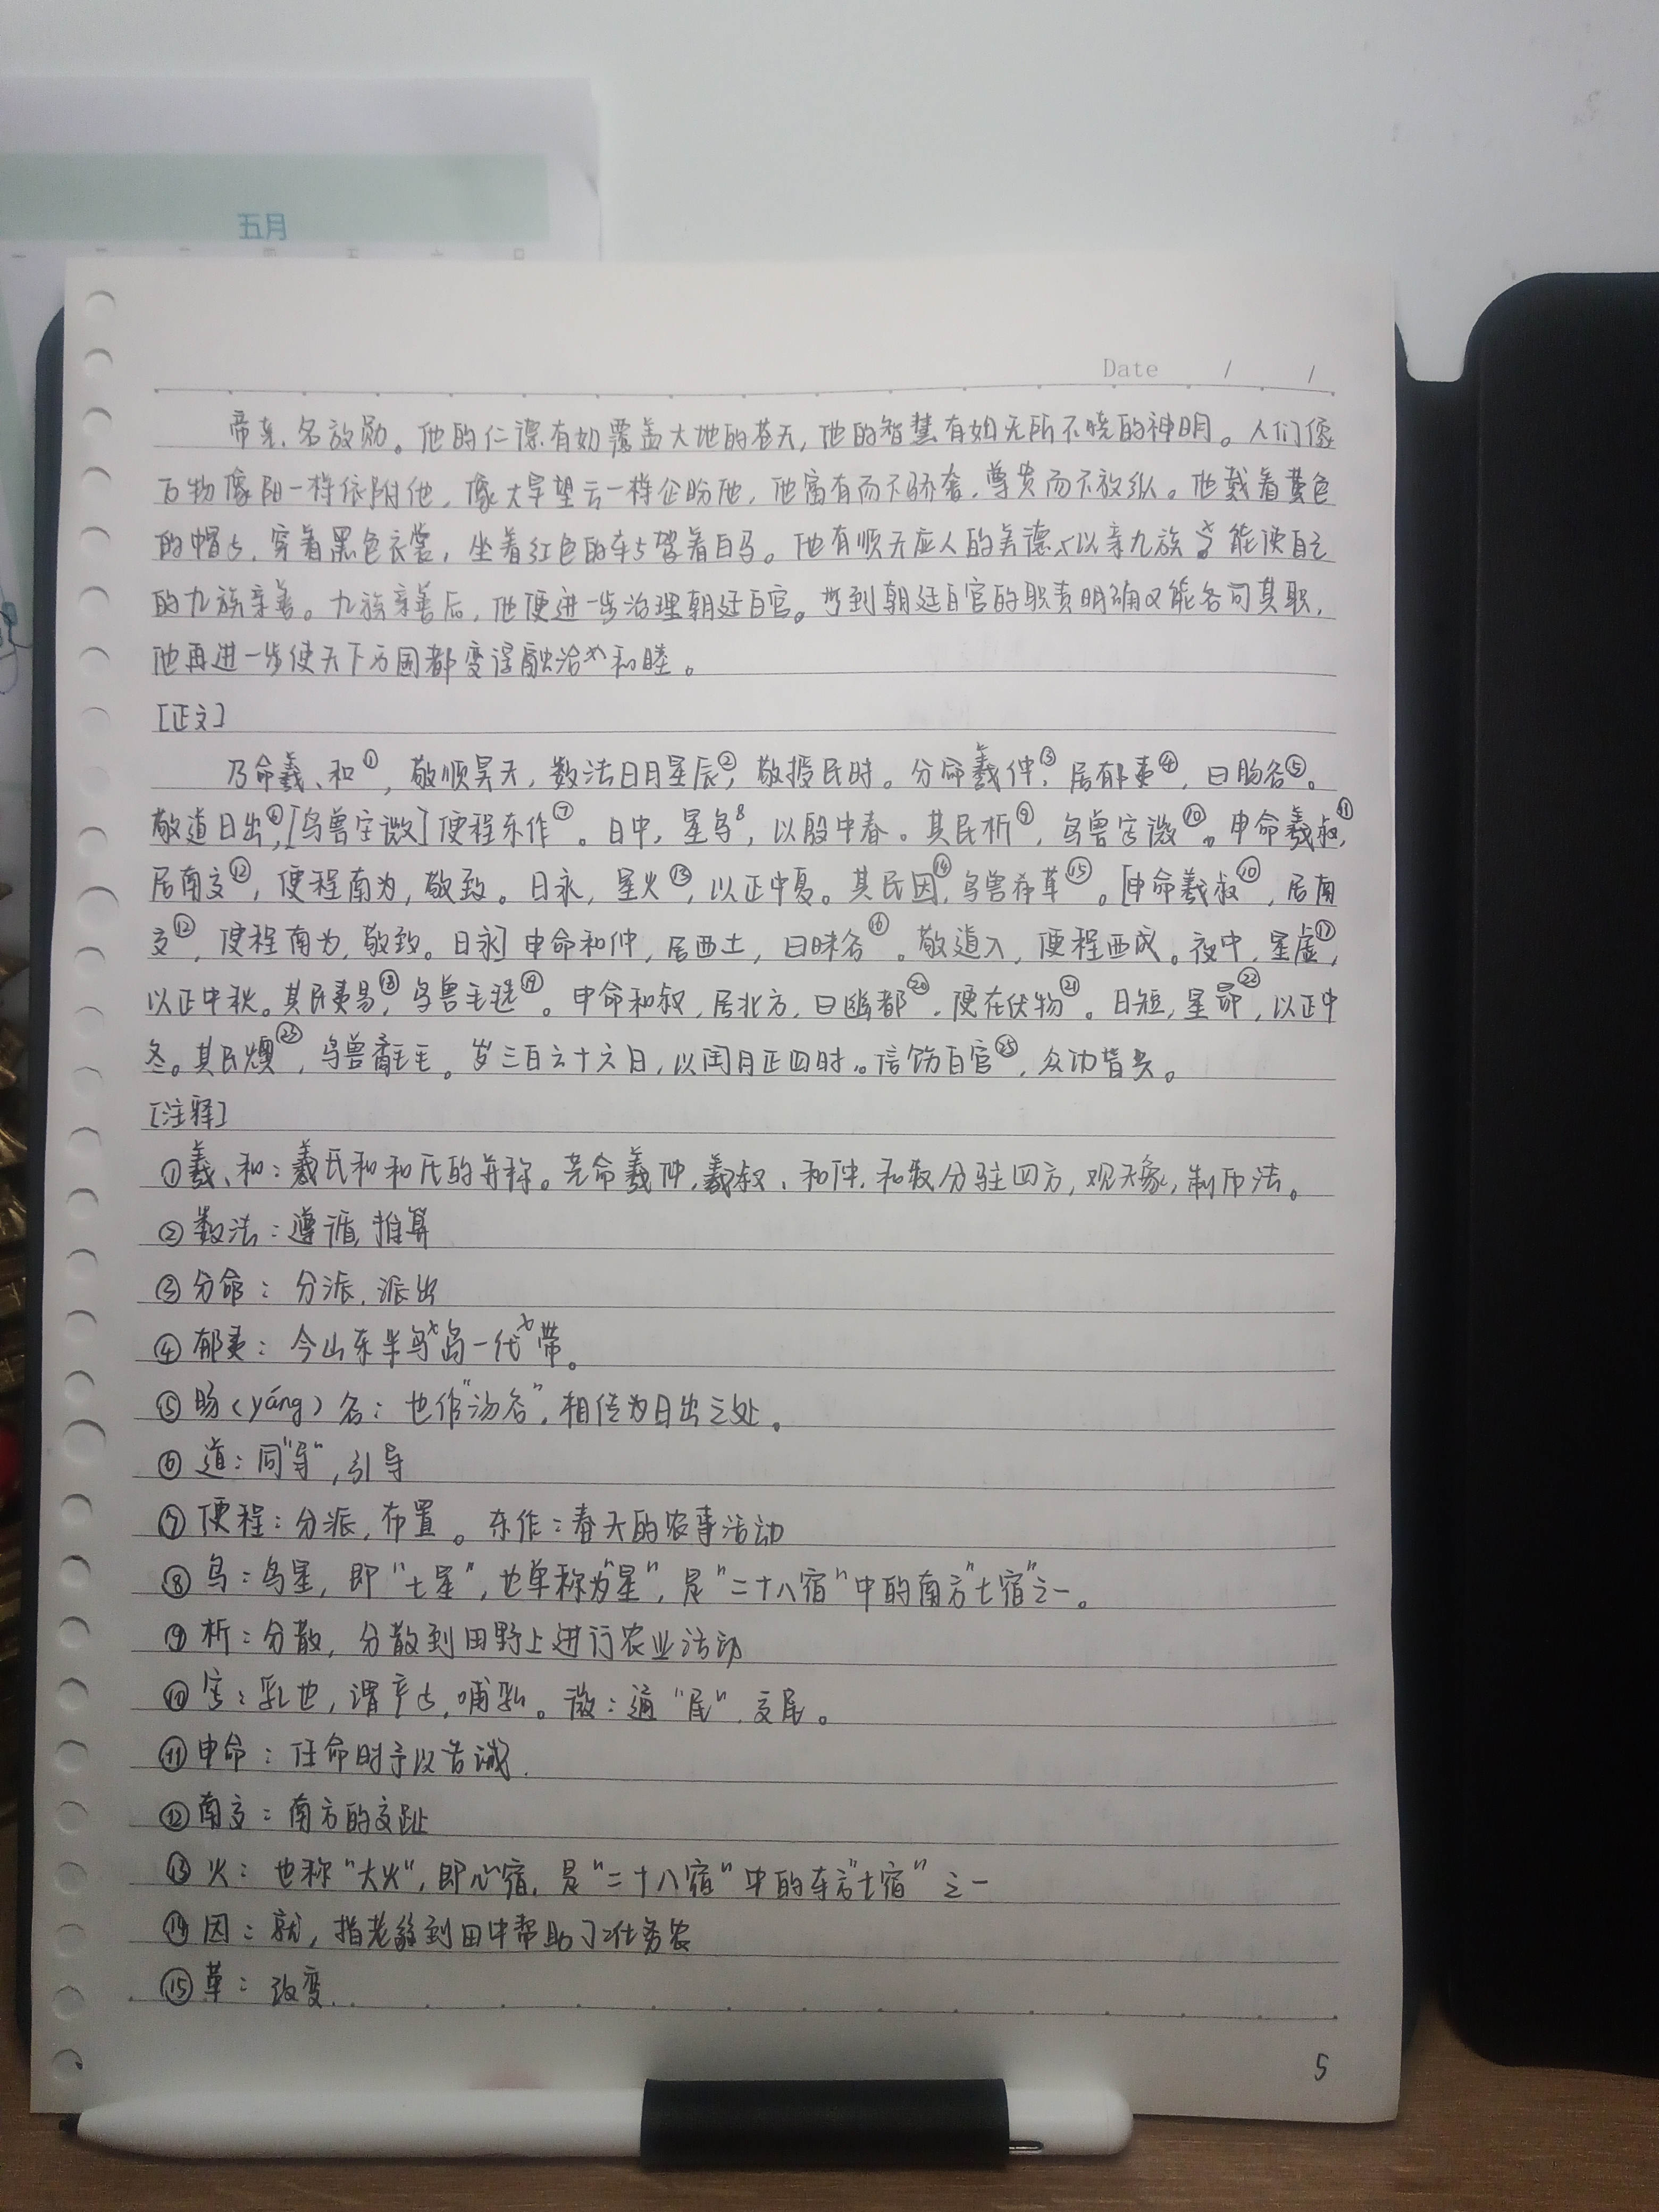 五月
一 二 三 四 五 六 日
Date / /
帝尧,名放勋。他的仁德有如覆盖大地的苍天,他的智慧有如无所不晓的神明。人们像
万物像阳一样依附他,像大旱望云一样企盼他,他富有而不骄奢,尊贵而不放纵。他戴着黄色
的帽子,穿着黑色衣裳,坐着红色的车子驾着白马。他有顺天应人的美德,以亲九族 能使自己
的九族亲善。九族亲善后,他便进一步治理朝廷百官。等到朝廷百官的职责明确又能各司其职,
他再进一步使天下万国都变得融洽 和睦。
[正文]
乃命羲、和①,敬顺昊天,数法日月星辰②,敬授民时。分命羲仲③,居郁夷④,曰旸谷⑤。
敬道日出⑥,[鸟兽字微]便程东作⑦。日中,星鸟8,以殷中春。其民析⑨,鸟兽字微⑩。申命羲叔⑪,
居南交⑫,便程南为,敬致。日永,星火⑬,以正中夏。其民因⑭,鸟兽希革⑮。[申命羲叔⑩,居南
交⑫,便程南为,敬致。日永]申命和仲,居西土,曰昧谷⑯。敬道入,便程西成。夜中,星虚⑰,
以正中秋。其民夷易⑱,鸟兽毛毨⑲。申命和叔,居北方,曰幽都⑳,便在伏物㉑。日短,星昴㉒,以正中
冬。其民燠㉓,鸟兽氄毛。岁三百六十六日,以闰月正四时。信饬百官㉕,众功皆兴。
[注释]
①羲、和:羲氏和和氏的并称。尧命羲仲,羲叔、和仲,和叔分驻四方,观天象,制历法。
②数法:遵循,推算
③分命:分派,派出
④郁夷:今山东半鸟岛一代带。
⑤旸(yáng)谷:也作"汤谷",相传为日出之处。
⑥道:同"导",引导
⑦便程:分派,布置。东作:春天的农事活动
⑧鸟:鸟星,即"七星",也单称为"星",是"二十八宿"中的南方"七宿"之一。
⑨析:分散,分散到田野上进行农业活动
⑩字:乳也,谓产子,哺乳。微:通"尾",交尾。
⑪申命:任命时予以告诫.
⑫南交:南方的交趾
⑬火:也称"大火",即心宿,是"二十八宿"中的东方"七宿"之一
⑭因:就,指老弱到田中帮助丁壮务农
⑮革:改变.
5